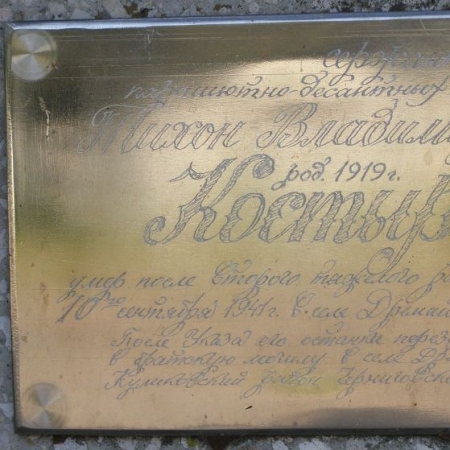 сержант
парашютно-десантных
Тихон Владими
род. 1919 г.
Костыр
умер после второго тяжелого ра
10го сентября 1941 г. в селе
После Указа его останки перез
в братскую могилу в селе
Куликовский район Черниговско